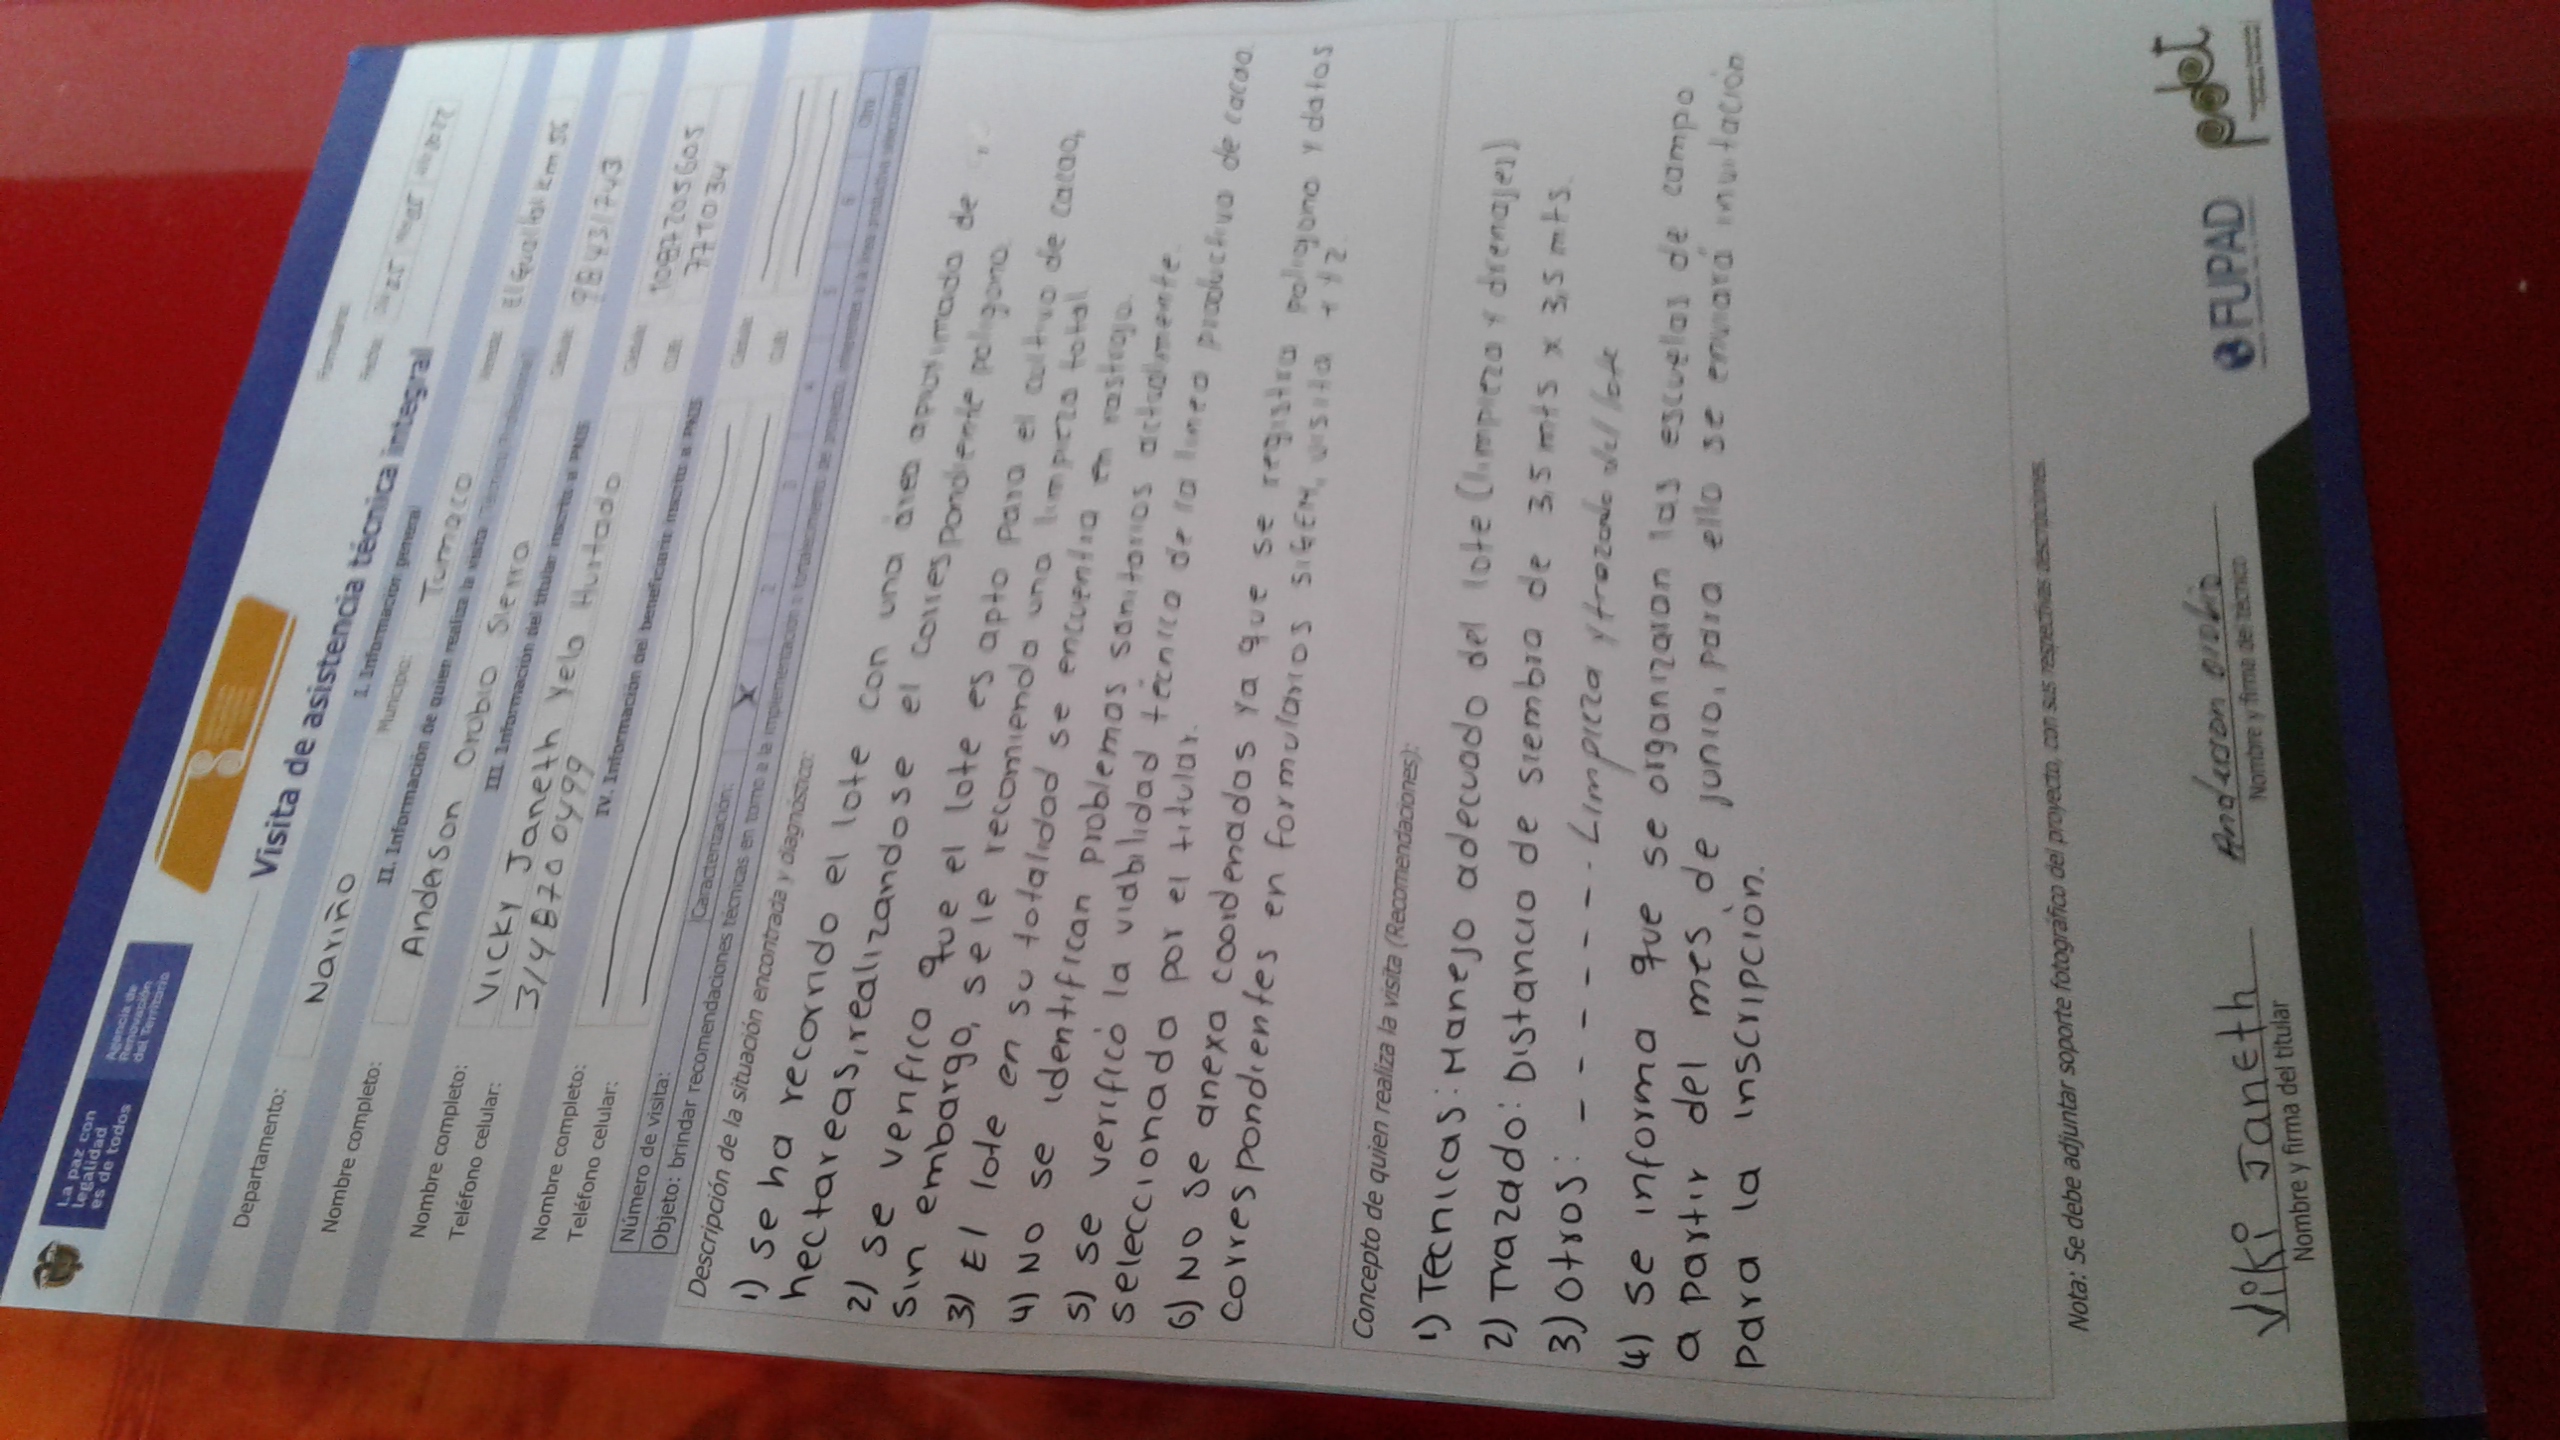 La paz con
legalidad
es de todos
Agencia de
Renovación
del Territorio
Visita de asistencia técnica integral
Formulario:
Fecha:
I. Información general
Departamento: Nariño Municipio: Tumaco Vereda: El Gualtal km 56
II. Información de quien realiza la visita
Nombre completo: Anderson Orobio Sierra Cédula: 98431743
III. Información del titular inscrito a PNIS
Nombre completo: Vicky Janeth Yela Hurtado Cédula: 1087205605
Teléfono celular: 3148700499 CUB:
IV. Información del beneficiario inscrito a PNIS
Nombre completo: Cédula:
Teléfono celular: CUB:
Número de visita: Caracterización: X 1 2 3 4 5 6 Otra
Objeto: brindar recomendaciones técnicas en torno a la implementación
Descripción de la situación encontrada y diagnóstico:
1) se ha recorrido el lote con una área aproximada de
hectareas, realizandose el correspondiente poligono.
2) se verifica que el lote es apto para el cultivo de cacao,
sin embargo, se le recomienda una limpieza total
3) El lote en su totalidad se encuentra en rastrojo.
4) NO se identifican problemas sanitarios actualmente.
5) se verificó la viabilidad técnica de la linea productiva de cacao
seleccionada por el titular.
6) NO se anexa coordenadas ya que se registra poligono y datos
correspondientes en formularios SIGEM, visita 1 y 2.
Concepto de quien realiza la visita (Recomendaciones):
1) Tecnicas: Manejo adecuado del lote (limpieza y drenajes)
2) Trazado: Distancia de siembra de 3,5 mts x 3,5 mts.
3) Otros: - - - - - - - Limpieza y trazado del lote
4) Se informa que se organizaran las escuelas de campo
a partir del mes de junio, para ello se enviará invitación
para la inscripción.
Nota: Se debe adjuntar soporte fotográfico del proyecto, con sus respectivas descripciones.
Viki Janeth Anderson orobio
Nombre y firma del titular Nombre y firma del técnico
FUPAD pdet